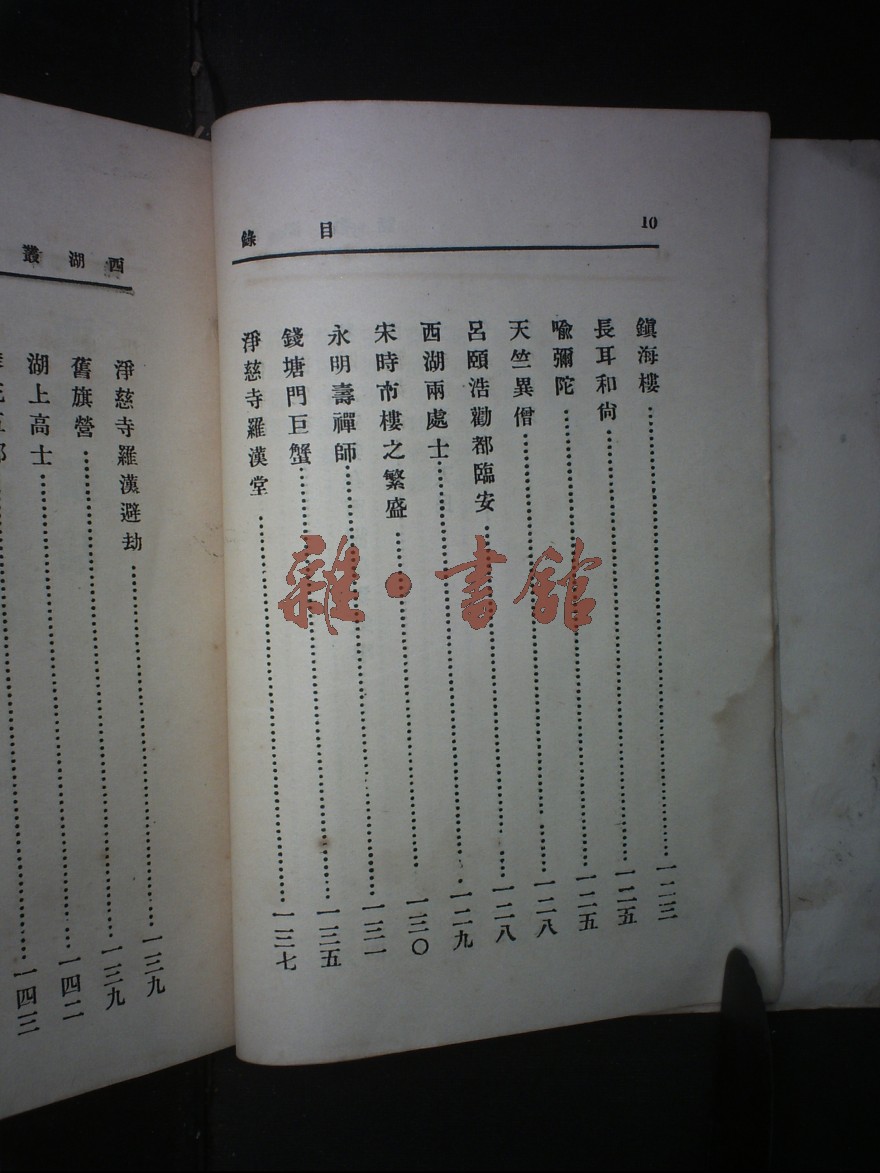 10
目錄
鎮海樓……一二三
長耳和尙……一二五
喩彌陀……一二五
天竺異僧……一二八
呂頤浩勸都臨安……一二八
西湖兩處士……一二九
宋時市樓之繁盛……一三〇
永明壽禪師……一三一
錢塘門巨蟹……一三五
淨慈寺羅漢堂……一三七
西湖叢
淨慈寺羅漢避劫……一三九
舊旗營……一三九
湖上高士……一四二
一四三
雜·書館